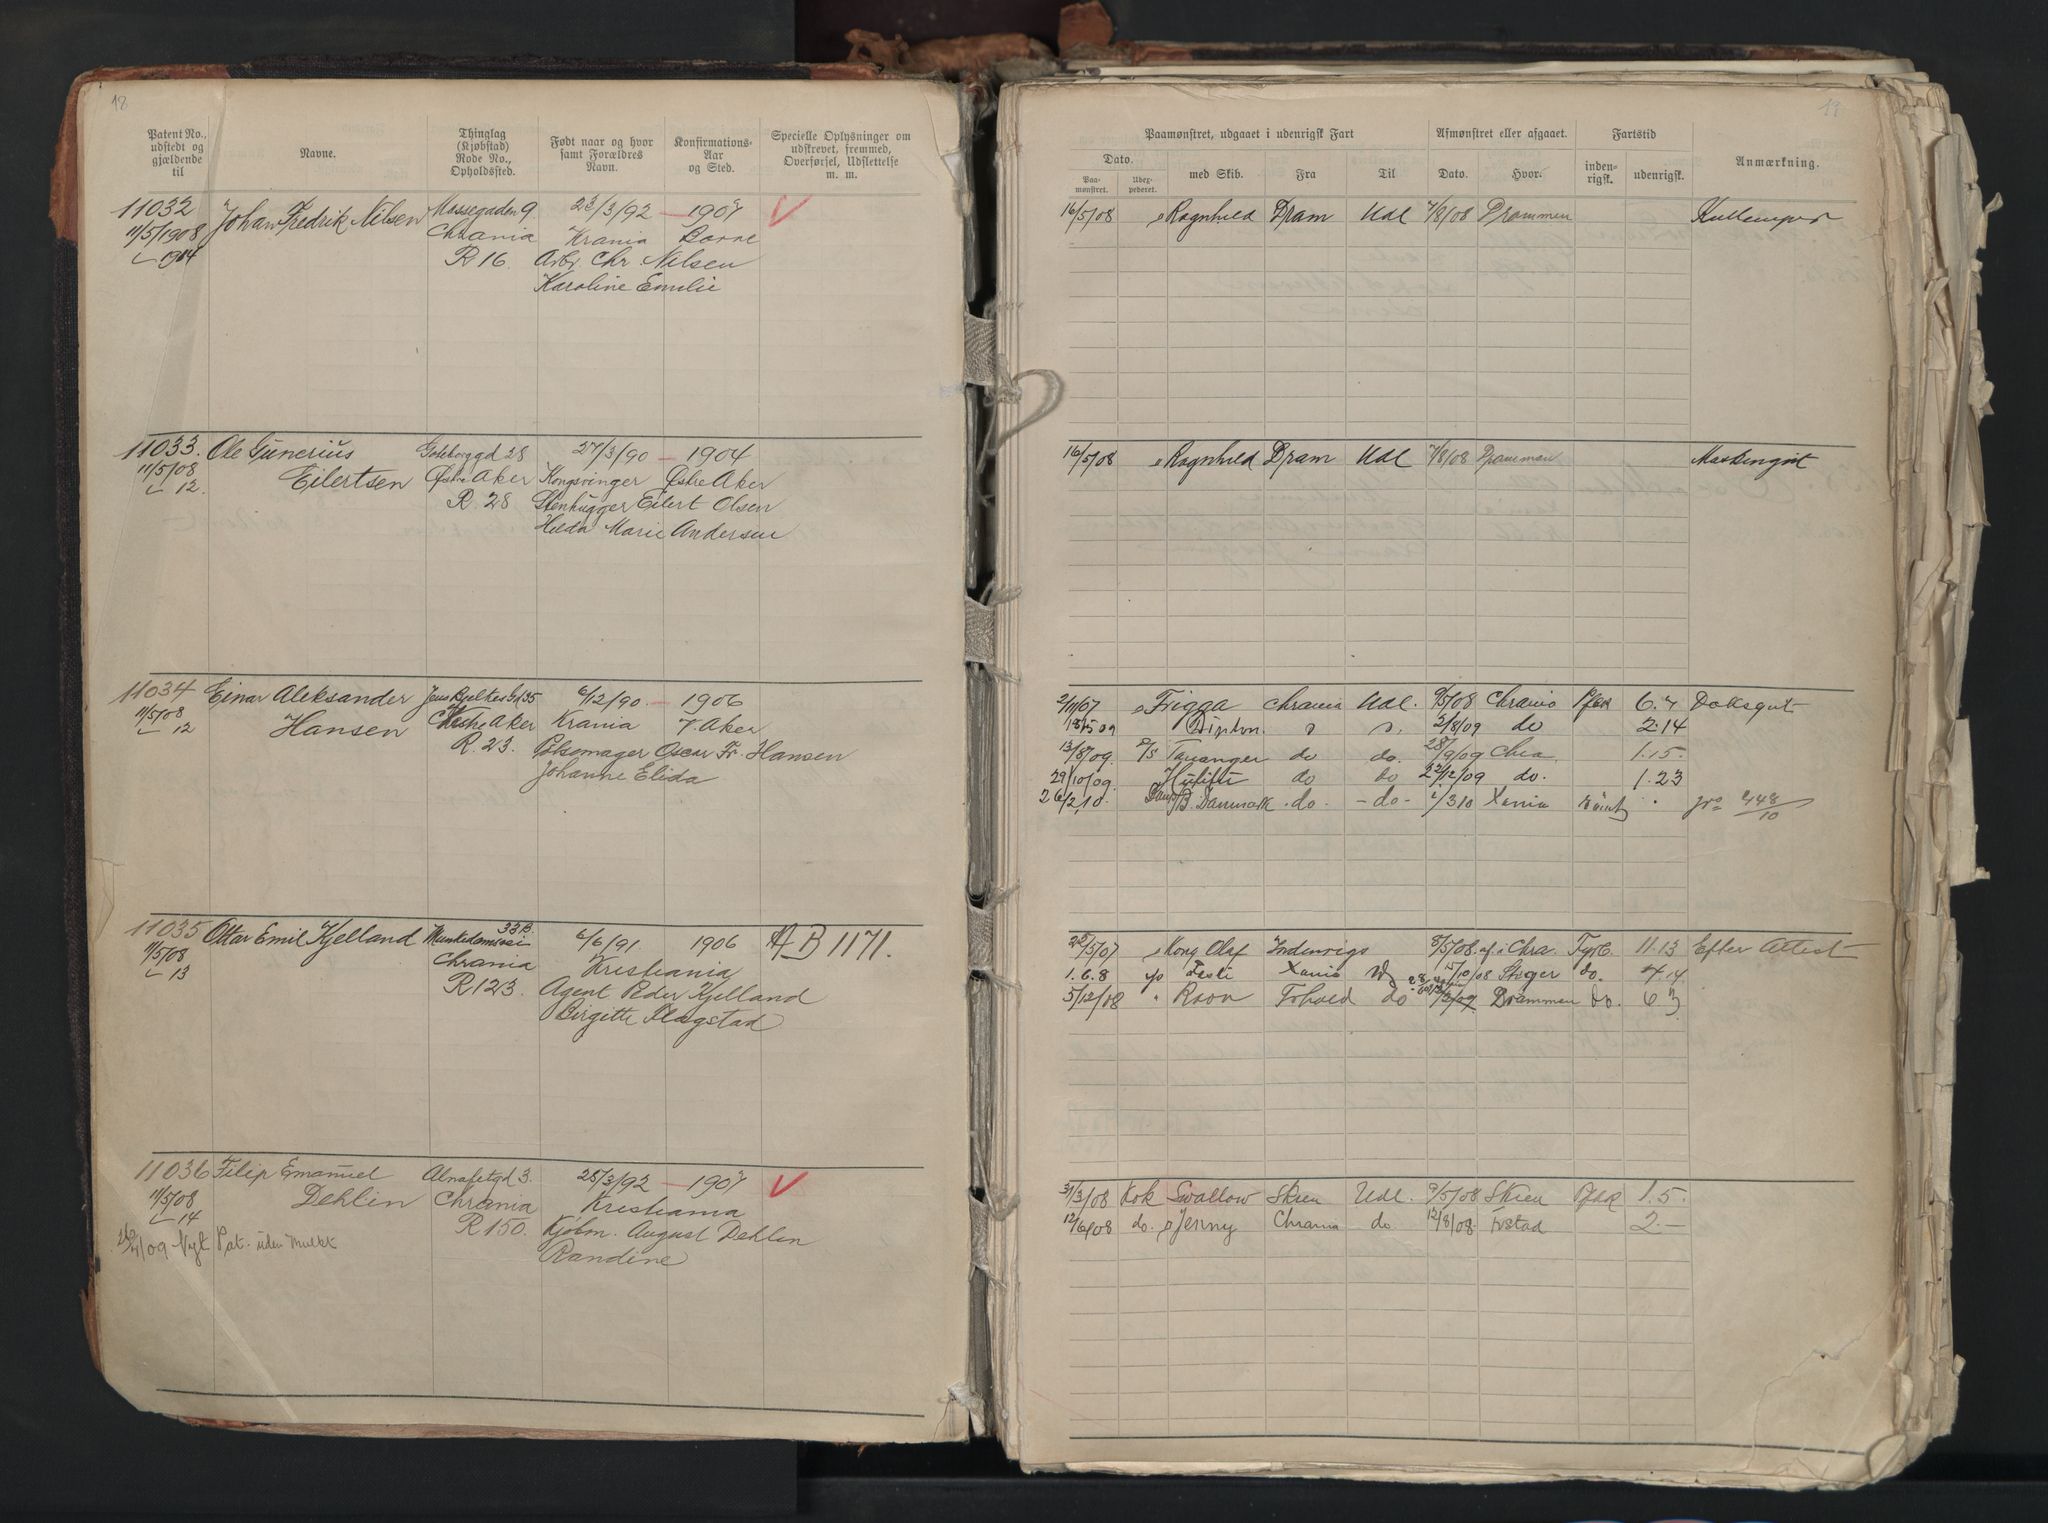 12
Patent No., udstedt og gjældende til
Navne.
Thinglag (Kjøbstad) Rode No., Opholdssted.
Født naar og hvor samt Forældres Navn.
Konfirmations-Aar og Sted.
Specielle Oplysninger om udskrevet, fremmed, Overførsel, Udslettelse m. m.
11032 Johan Fredrik Nilsen Mossegaden 9. 23/3/92 — 1907 V
11/5/1908 Chrania Krania
1914 R 16. Arb. Chr. Nilsen
Karoline Emilie
11033. Ole Gunerius Goteborggd 28 27/3/90 — 1904
11/5/08 Eilertsen Østre Aker Kongsvinger Østre Aker
12. R. 28 Stenhugger Eilert Olsen
Hilda Marie Andersen
11034 Einar Aleksander Jens Bjelkes Gd 35 6/12/90 — 1906
11/5/08 Hansen Aker Krania V. Aker
12 R. 23. Pølsemager Oscar Fr. Hansen
Johanne Elida
11035 Ottar Emil Kjelland Munkedamsvei 33 B. 6/6/91. 1906 AB 1171.
11/5/08 Chrania Kristiania
13 R 123. Agent Peder Kjelland
Birgitte Plagstad
11036 Filip Emanuel Alnafetgd 3. 28/3/92 — 1907 V
11/5/08 Dehlin Chrania Kristiania
14 R 150. Kjøbm. August Dehlin
/09 Nyt Pat. uden Mulkt Randine
19
Paamønstret, udgaaet i udenrigsk Fart
Afmønstret eller afgaaet.
Fartstid
Anmærkning.
Dato.
Paa-mønstret.
Udex-pederet.
med Skib.
Fra
Til
Dato.
Hvor.
inden-rigsk.
udenrigsk.
16/5/08 s Ragnhild Dram Udl 7/8/08 Drammen Kullemper
16/5/08 s Ragnhild Dram Udl 7/8/08 Drammen Maskingut
2/11/07 s Frigga Chrania Udl. 9/5/08 Chrania Pfak 6.7 Doksgut
18/5 09 2/8/09 do 2.14
13/8/09. s/s Tananger do do. 28/9/09 Chra 1.15.
29/10/09. do do 22/12/09 do. 1.23
26/2 10. B. Danmark do. - do - 1/3 10 Xania
25/5/07 s Kong Olaf Indenrigs 8/5/08 af i Chra. Fyrb. 11.13 Efter Attest
1.6.8 Xania 15/10/08 do. 4.14
5/12/08 " do Drammen do. 6.3
31/3/08 Kok Swallow Skien Udl. 9/5/08 Skien Pfak 1.5.
12/6/08 do. s Jenny Chrania do. 12/8/08. 2.—